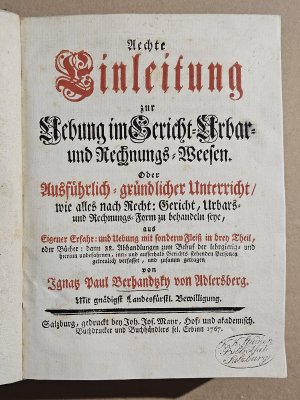 Aechte
Einleitung
zur
Uebung im Gericht-Urbar-
und Rechnungs-Weesen.
Oder
Ausführlich-gründlicher Unterricht/
wie alles nach Recht: Gericht, Urbars-
und Rechnungs-Form zu behandeln seye,
aus
Eigener Erfahr- und Uebung mit sondern Fleiß in drey Theil,
oder Bücher: dann 88. Abhandlungen zum Behuf der lehrgierig- und
hierum unerfahrnen, inn- und ausserhalb Gerichts stehenden Personen
getreulich verfasset, und zusamm getragen
von
Ignatz Paul Berhandtzky von Adlersberg.
Mit gnädigst Landesfürstl. Bewilligung.
Salzburg, gedruckt bey Joh. Jos. Mayr, Hof- und akademisch.
Buchdrucker und Buchhändlers sel. Erbinn 1767.
Salzburg